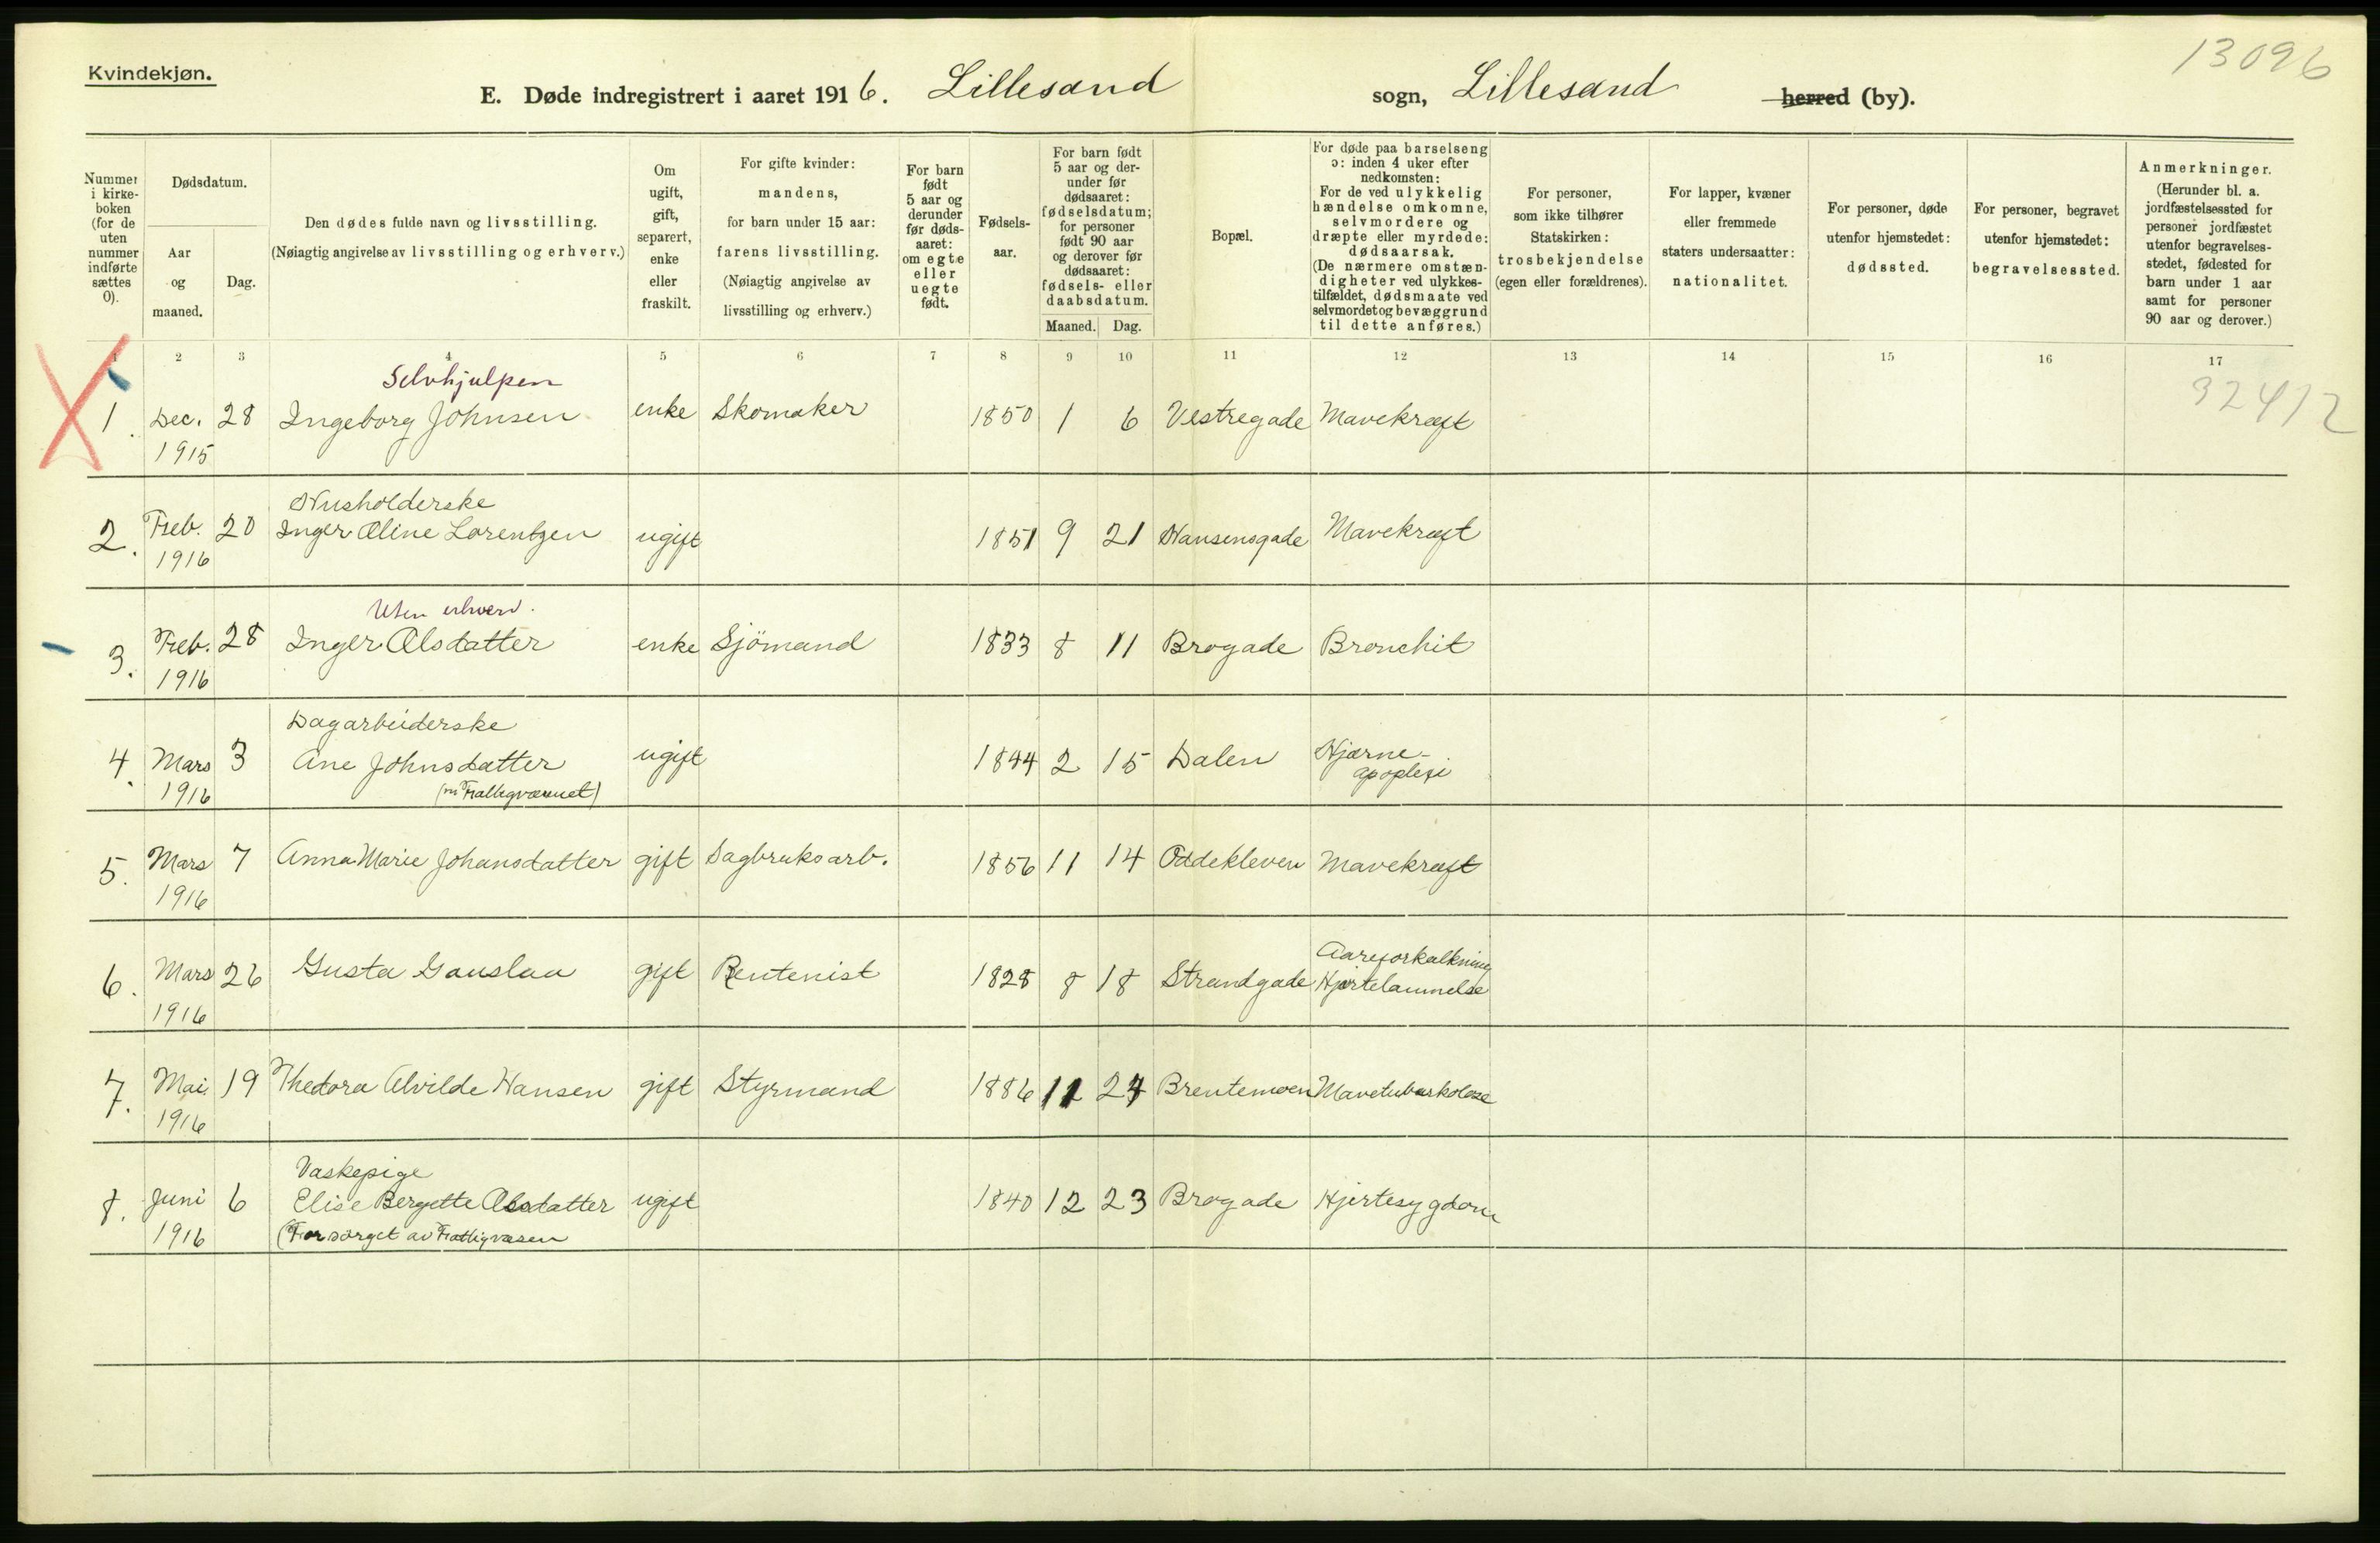 Kvindekjøn.
13096
E. Døde indregistrert i aaret 1916. Lillesand sogn, Lillesand herred (by).
Nummer i kirke-boken (for de uten nummer indførte sættes 0).
Dødsdatum.
Aar og maaned.
Dag.
Den dødes fulde navn og livsstilling.
(Nøiagtig angivelse av livsstilling og erhverv.)
Om ugift, gift, separert, enke eller fraskilt.
For gifte kvinder: mandens, for barn under 15 aar: farens livsstilling. (Nøiagtig angivelse av livsstilling og erhverv.)
For barn født 5 aar og derunder før døds-aaret: om egte eller uegte født.
Fødsels-aar.
For barn født 5 aar og der-under før dødsaaret: fødselsdatum; for personer født 90 aar og derover før dødsaaret: fødsels- eller daabsdatum.
Maaned. Dag.
Bopæl.
For døde paa barselseng ɔ: inden 4 uker efter nedkomsten: For de ved ulykkelig hændelse omkomne, selvmordere og dræpte eller myrdede: dødsaarsak. (De nærmere omstæn-digheter ved ulykkes-tilfældet, dødsmaate ved selvmordet og bevæggrund til dette anføres.)
For personer, som ikke tilhører Statskirken: trosbekjendelse (egen eller forældrenes).
For lapper, kvæner eller fremmede staters undersaatter: nationalitet.
For personer, døde utenfor hjemstedet: dødssted.
For personer, begravet utenfor hjemstedet: begravelsessted.
Anmerkninger. (Herunder bl. a. jordfæstelsessted for personer jordfæstet utenfor begravelses-stedet, fødested for barn under 1 aar samt for personer 90 aar og derover.)
1 2 3 4 5 6 7 8 9 10 11 12 13 14 15 16 17
Selvhjulpen
1. Dec. 28 Ingeborg Johnsen enke Skomaker 1850 1 6 Vestregade Mavekræft 32412
1915
Husholderske
2. Feb. 20 Inger Oline Lorentzen ugift 1851 9 21 Hansensgade Mavekræft
1916
Uten erhverv.
3. Feb. 28 Inger Olsdatter enke Sjömand 1833 8 11 Brogade Bronchit
1916
Dagarbeiderske
4. Mars 3 Ane Johnsdatter ugift 1844 2 15 Dalen Hjærne-apoplexi
1916
5. Mars 7 Anna Marie Johansdatter gift Sagbruksarb. 1856 11 14 Oddekleven Mavekræft
1916
Aareforkalkning
6. Mars 26 Gusta Gauslaa gift Rentenist 1828 8 18 Strandgade Hjertelammelse
1916
7. Mai 19 Thedora Alvilde Hansen gift Styrmand 1886 11 24 Brentemoen Mavetuberkolose
1916
Vaskepige
8. Juni 6 Elise Bergette Olsdatter ugift 1840 12 23 Brogade Hjertesygdom
1916 (Forsörget av Fattigvæsen